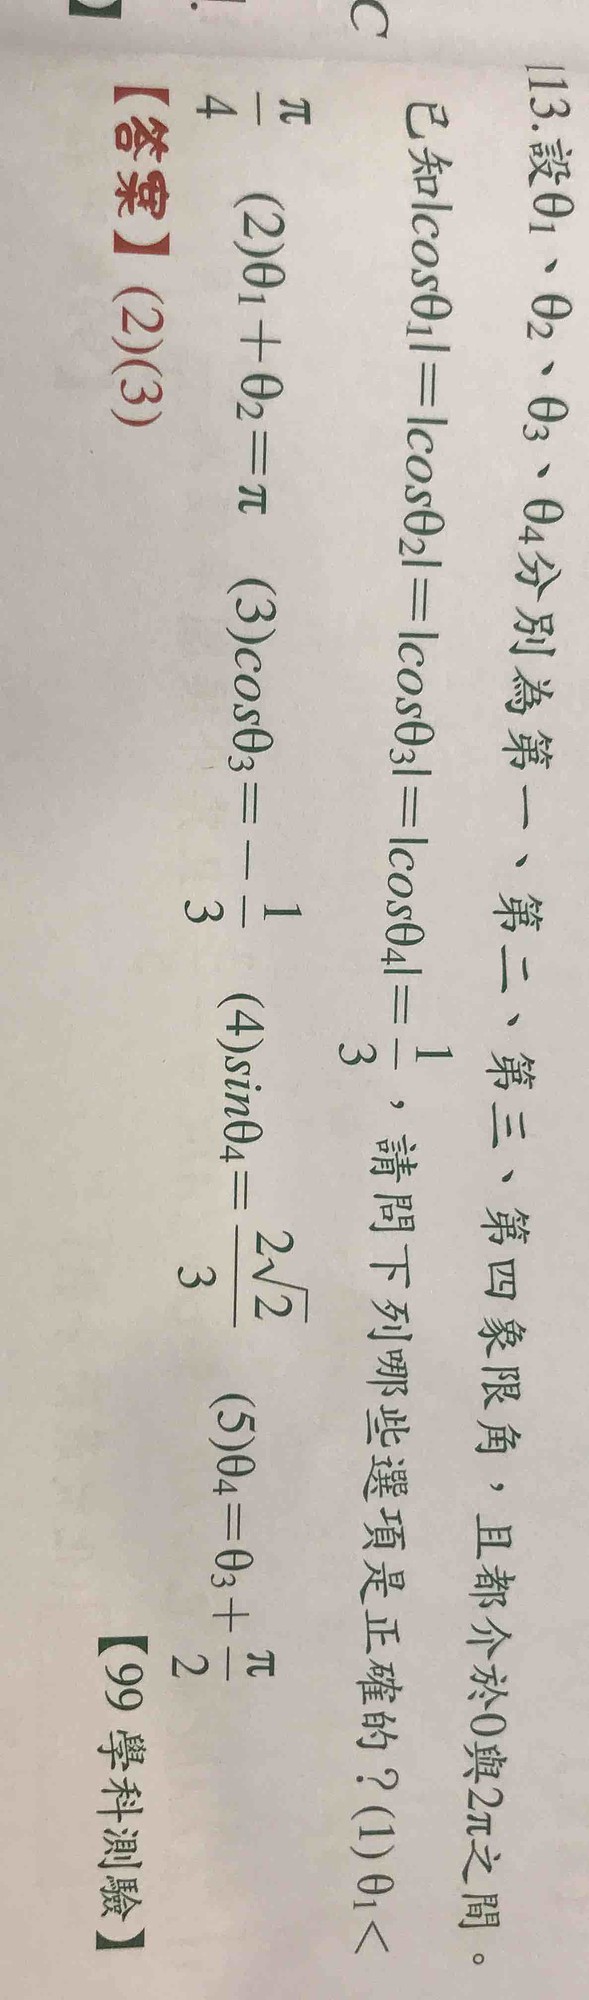 C
113.設θ₁、θ₂、θ₃、θ₄分別為第一、第二、第三、第四象限角，且都介於0與2π之間。
已知|cosθ₁|=|cosθ₂|=|cosθ₃|=|cosθ₄|=1/3，請問下列哪些選項是正確的？(1)θ₁<
π/4 (2)θ₁+θ₂=π (3)cosθ₃=-1/3 (4)sinθ₄=2√2/3 (5)θ₄=θ₃+π/2
【答案】(2)(3)
【99 學科測驗】